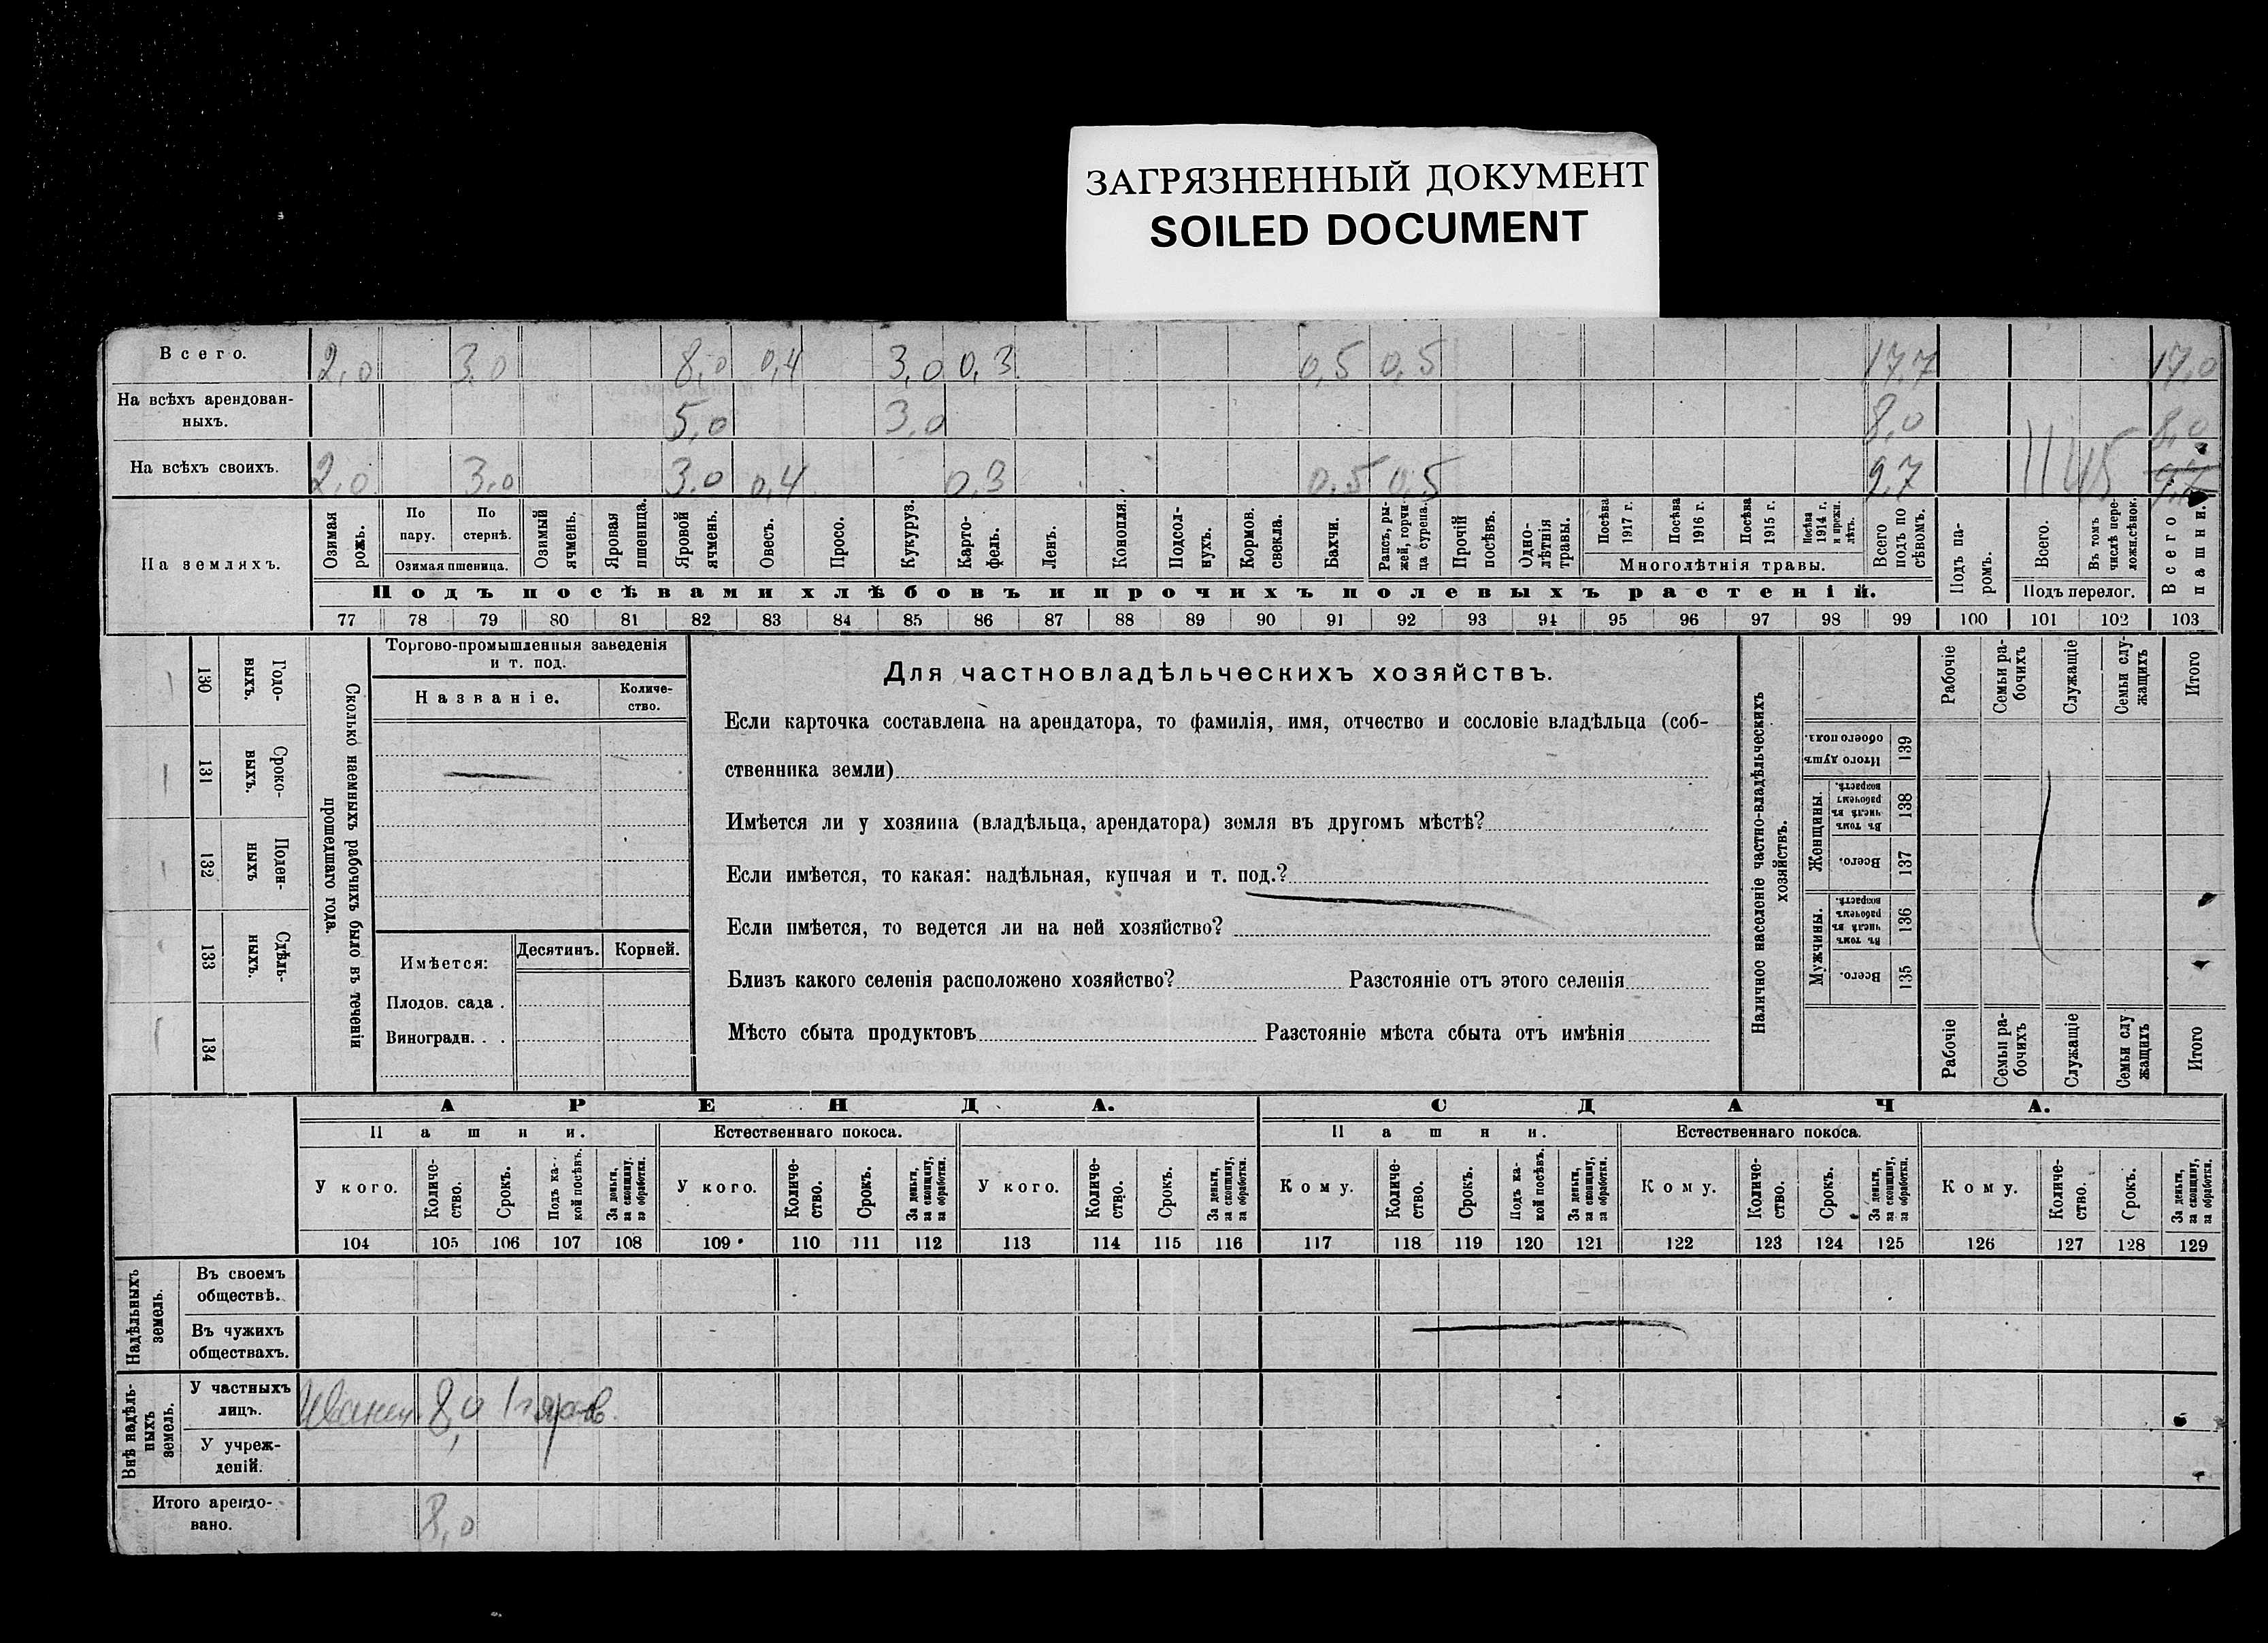 ЗАГРЯЗНЕННЫЙ ДОКУМЕНТ
SOILED DOCUMENT
Всего. 2,0 3,0 8,0 0,4 3,0 0,3 0,5 0,5 17,7 17,0
На всѣхъ арендован-
ныхъ. 5,0 3,0 8,0 8,0
На всѣхъ своихъ. 2,0 3,0 3,0 0,4 0,3 0,5 0,5 9,7 9,7
На земляхъ.
Озимая рожь.
По пару.
По стернѣ.
Озимая пшеница.
Озимый ячмень.
Яровая пшеница.
Яровой ячмень.
Овесъ.
Просо.
Кукуруз.
Карто-
фель.
Ленъ.
Конопля.
Подсол-
нухъ.
Кормов. свекла.
Бахчи.
Рапсъ, ры-
жей, горчи-
ца сурепа.
Прочій посѣвъ.
Одно-
лѣтнія травы.
Посѣва 1917 г.
Посѣва 1916 г.
Посѣва 1915 г.
Посѣва 1914 г. и прежн. лѣтъ.
Многолѣтнія травы.
Всего подъ по сѣвомъ.
Подъ па-
ромъ.
Всего.
Въ томъ числѣ пере-
ложн.сѣнок.
Подъ перелог.
Всего пашни.
Подъ посѣвами хлѣбовъ и прочихъ полевыхъ растеній.
77 78 79 80 81 82 83 84 85 86 87 88 89 90 91 92 93 94 95 96 97 98 99 100 101 102 103
Сколько наемныхъ рабочихъ было въ теченіи
прошедшаго года.
130 Годо-
выхъ.
131 Сроко-
выхъ.
132 Поден-
ныхъ
133 Сдѣль-
ныхъ.
134
Торгово-промышленныя заведенія
и т. под.
Названіе. Количе-
ство.
Имѣется: Десятинъ. Корней.
Плодов. сада .
Виноградн. . .
Для частновладѣльческихъ хозяйствъ.
Если карточка составлена на арендатора, то фамилія, имя, отчество и сословіе владѣльца (соб-
ственника земли)
Имѣется ли у хозяина (владѣльца, арендатора) земля въ другомъ мѣстѣ?
Если имѣется, то какая: надѣльная, купчая и т. под.?
Если имѣется, то ведется ли на ней хозяйство?
Близъ какого селенія расположено хозяйство? Разстояніе отъ этого селенія
Мѣсто сбыта продуктовъ Разстояніе мѣста сбыта отъ имѣнія
Наличное населеніе частно-владѣльческихъ
хозяйствъ.
Рабочіе
Семьи ра-
бочихъ
Служащіе
Семьи слу-
жащихъ
Итого
Итого душъ обоего пола. 139
Женщины.
Въ томъ числѣ въ рабочемъ возрастѣ. 138
Всего. 137
Мужчины.
Въ томъ числѣ въ рабочемъ возрастѣ. 136
Всего. 135
Рабочіе
Семьи ра-
бочихъ
Служащіе
Семьи слу
жащихъ
Итого
АРЕНДА. СДАЧА.
Пашни. Естественнаго покоса. Пашни. Естественнаго покоса.
У кого. Количе-
ство. Срокъ. Подъ ка-
кой посѣвъ. За деньги, за скопщину, за обработки.
У кого. Количе-
ство. Срокъ. За деньги, за скопщину, за обработки.
У кого. Количе-
ство. Срокъ. За деньги, за скопщину, за обработки.
Кому. Количе-
ство. Срокъ. Подъ ка-
кой посѣвъ. За деньги, за скопщину, за обработки.
Кому. Количе-
ство. Срокъ. За деньги, за скопщину, за обработки.
Кому. Количе-
ство. Срокъ. За деньги, за скопщину, за обработки.
104 105 106 107 108 109 110 111 112 113 114 115 116 117 118 119 120 121 122 123 124 125 126 127 128 129
Надѣльныхъ
земель.
Въ своемъ
обществѣ.
Въ чужихъ
обществахъ.
Внѣ надѣль-
ныхъ
земель.
У частныхъ
лицъ. 8,0
У учреж-
деній.
Итого арендо-
вано. 8,0